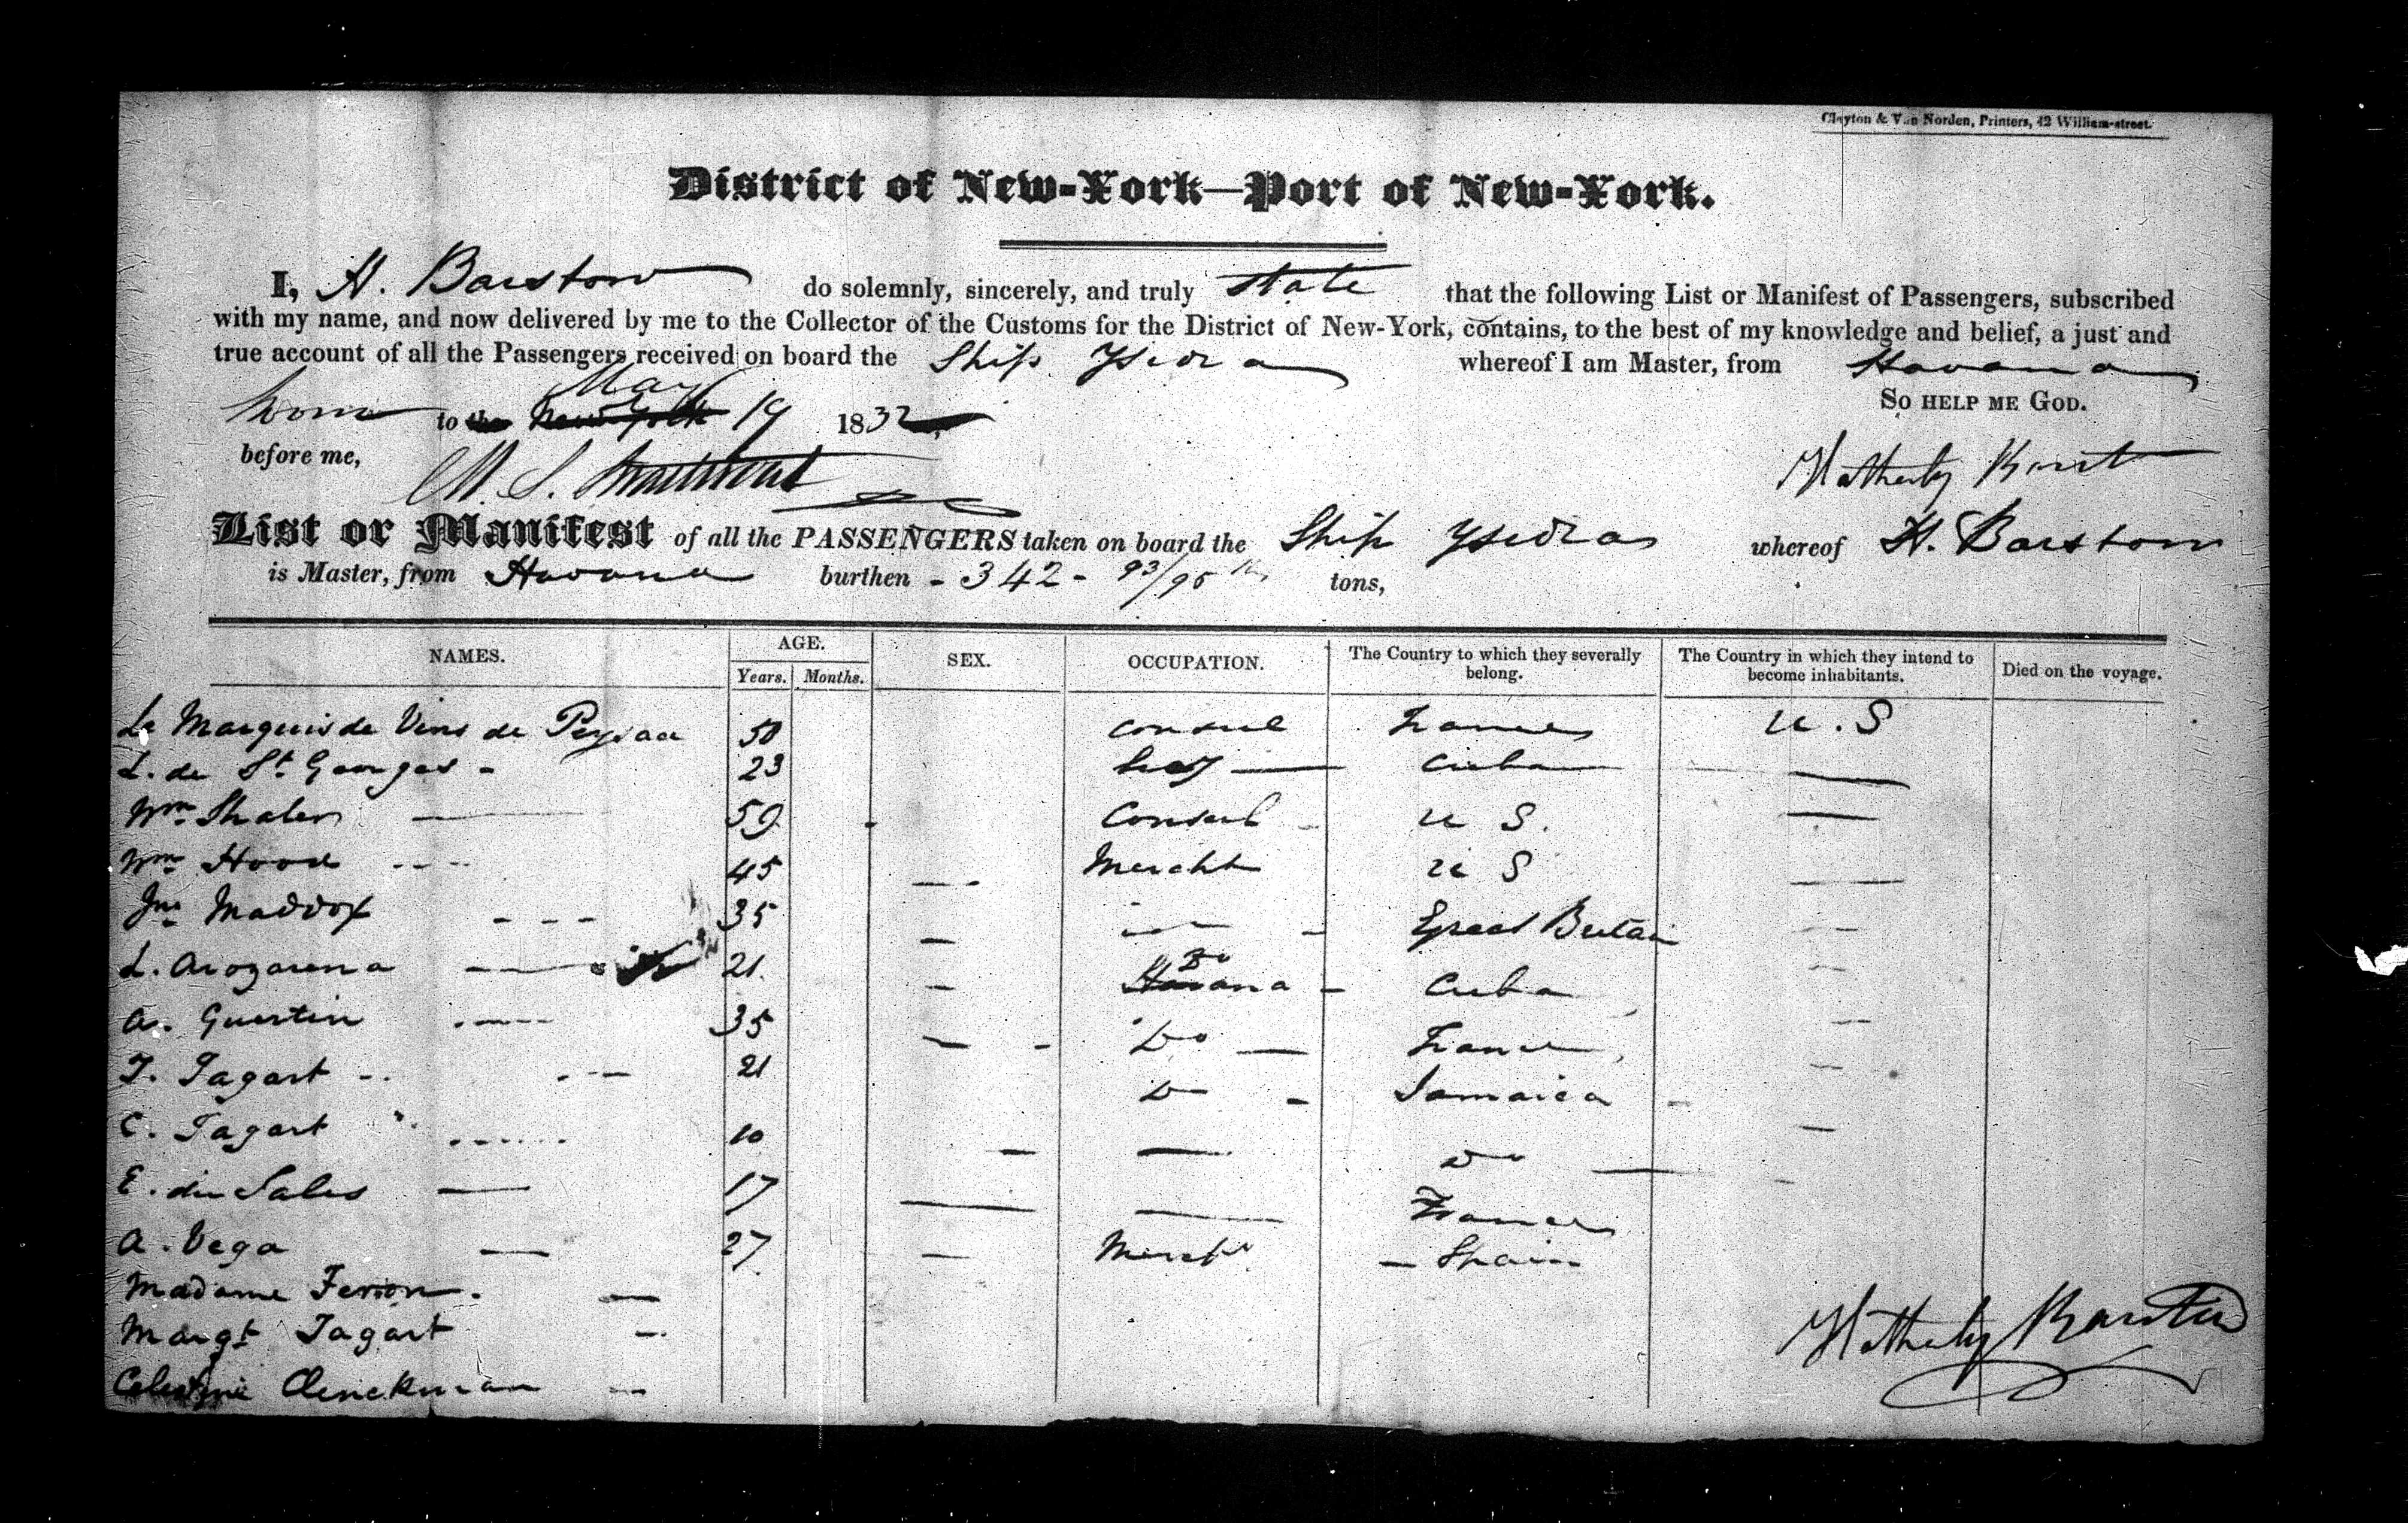 Clayton & Van Norden, Printers, 42 William-street.
District of New-York—Port of New-York.
I, H. Barstow do solemnly, sincerely, and truly state that the following List or Manifest of Passengers, subscribed
with my name, and now delivered by me to the Collector of the Customs for the District of New-York, contains, to the best of my knowledge and belief, a just and
true account of all the Passengers received on board the Ship Ysidra whereof I am Master, from Havana
So HELP ME GOD.
Sworn to the New York May 19 1832
before me, Hatherly Barstow
List or Manifest of all the PASSENGERS taken on board the Ship Ysidra whereof H. Barstow
is Master, from Havana burthen - 342 - 93/95 tons,
NAMES. AGE. SEX. OCCUPATION. The Country to which they severally belong. The Country in which they intend to become inhabitants. Died on the voyage.
Years. Months.
Le Marquis de Vins de Peysac 50 Consul France U. S
L. de St. Georges - 23 Cuba
Wm Shaler 59 Consul U S.
Wm Hood 45 Mercht U S
Jno Maddox 35 Great Britain
L. Arozarena 21 Havana Do Cuba
A. Guertin 35 Do France
T. Tagart 21 Do Jamaica
C. Tagart 10 Do
E. du Sales 17 France
A. Vega 27 Mercht Spain
Madame Feron.
Margt Tagart
Celestine Clenckman
Hatherly Barstow